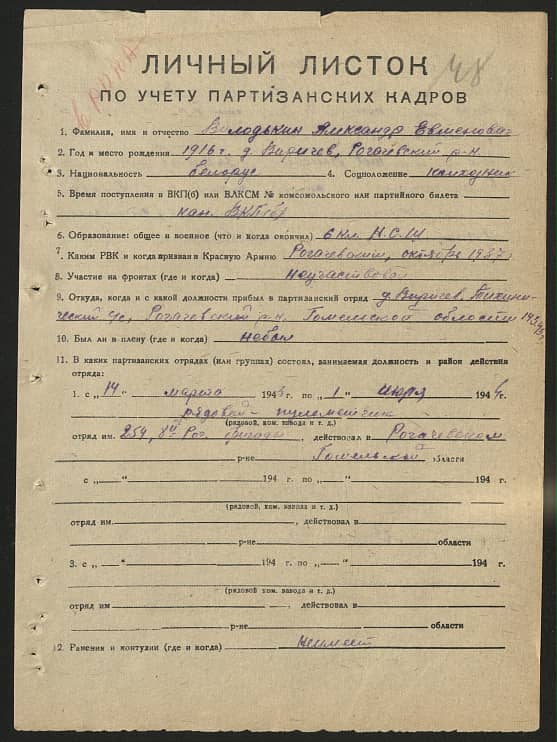 48
ЛИЧНЫЙ ЛИСТОК
ПО УЧЕТУ ПАРТИЗАНСКИХ КАДРОВ
1. Фамилия, имя и отчество Володькин Александр Евменович
2. Год и место рождения 1916 г. д. Виричев, Рогачевский р-н
3. Национальность белорус 4. Соцположение колхозник
5. Время поступления в ВКП(б) или ВЛКСМ № комсомольского или партийного билета
кан. ВКП(б)
6. Образование: общее и военное (что и когда окончил) 6 кл. Н.С.Ш
7. Каким РВК и когда призван в Красную Армию Рогачевским, октябрь 1937
8. Участие на фронтах (где и когда) неучаствовал
9. Откуда, когда и с какой должности прибыл в партизанский отряд д. Виричев,
с/с, Рогачевский р-н. Гомельской области
10. Был ли в плену (где и когда) небыл
11. В каких партизанских отрядах (или группах) состоял, занимаемая должность и район действия
отряда:
1. с „14“ марта 1943 г. по „1“ 1944 г.
рядовой - пулеметчик
(рядовой, ком. взвода и т. д.)
отряд им. 254, 8й Рог. бригады, действовал в Рогачевском
р-не Гомельской области
с „ “ 194 г. по „ “ 194 г.
(рядовой, ком. взвода и т. д.)
отряд им. , действовал в
р-не области
3. с „ “ 194 г. по „ “ 194 г.
(рядовой, ком. взвода и т. д.)
отряд им , действовал в
р-не области
12. Ранения и контузии (где и когда) неимеет